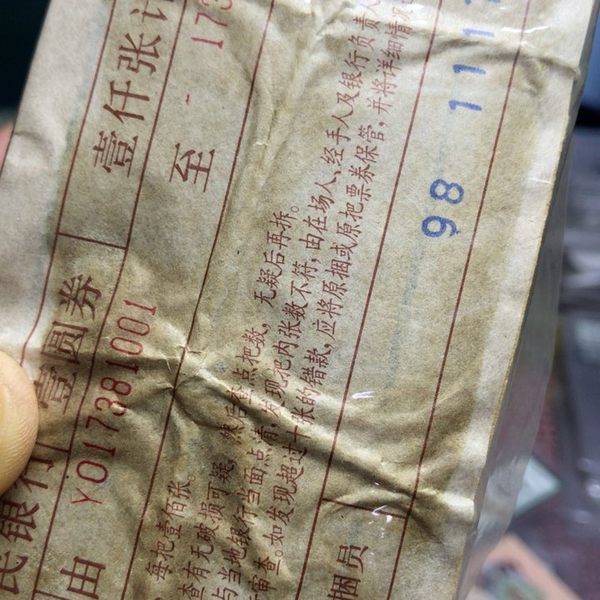 民银行 壹圆券 壹仟张
由 Y017381001 至 173
每把壹佰张
查有无破损可疑，然后查点把数，无疑后再拆。
与当地银行当面点清，发现把内张数不符，由在场人、经手人及银行负责人
审查。如发现超过十张的错款，应将原捆或原把票券保管，并将详细情况
捆员
98 11 1